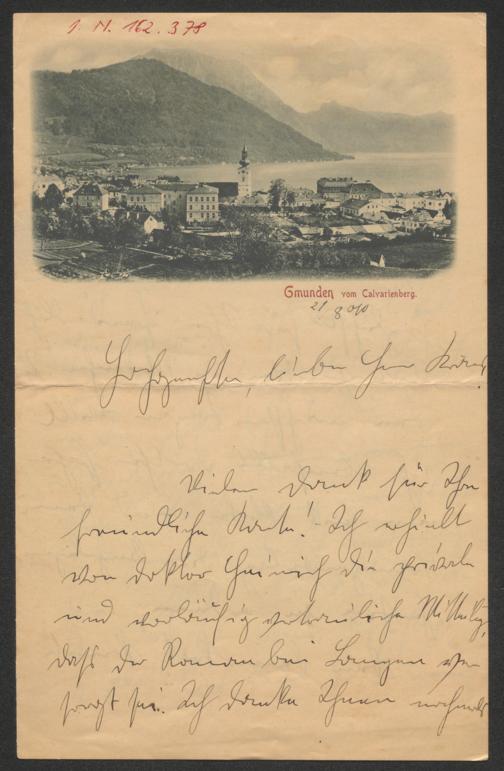 I. N. 162.378
Gmunden vom Calvarienberg.
21/8 010
Hochgeehrter, lieber Herr Kraus
Vielen Dank für Ihre
freundliche Karte! Ich erhielt
von Doktor Heinrich die private
und vorläufig vertrauliche Mitteilg,
dass der Roman bei Langen ver
sorgt sei. Ich danke Ihnen nochmals